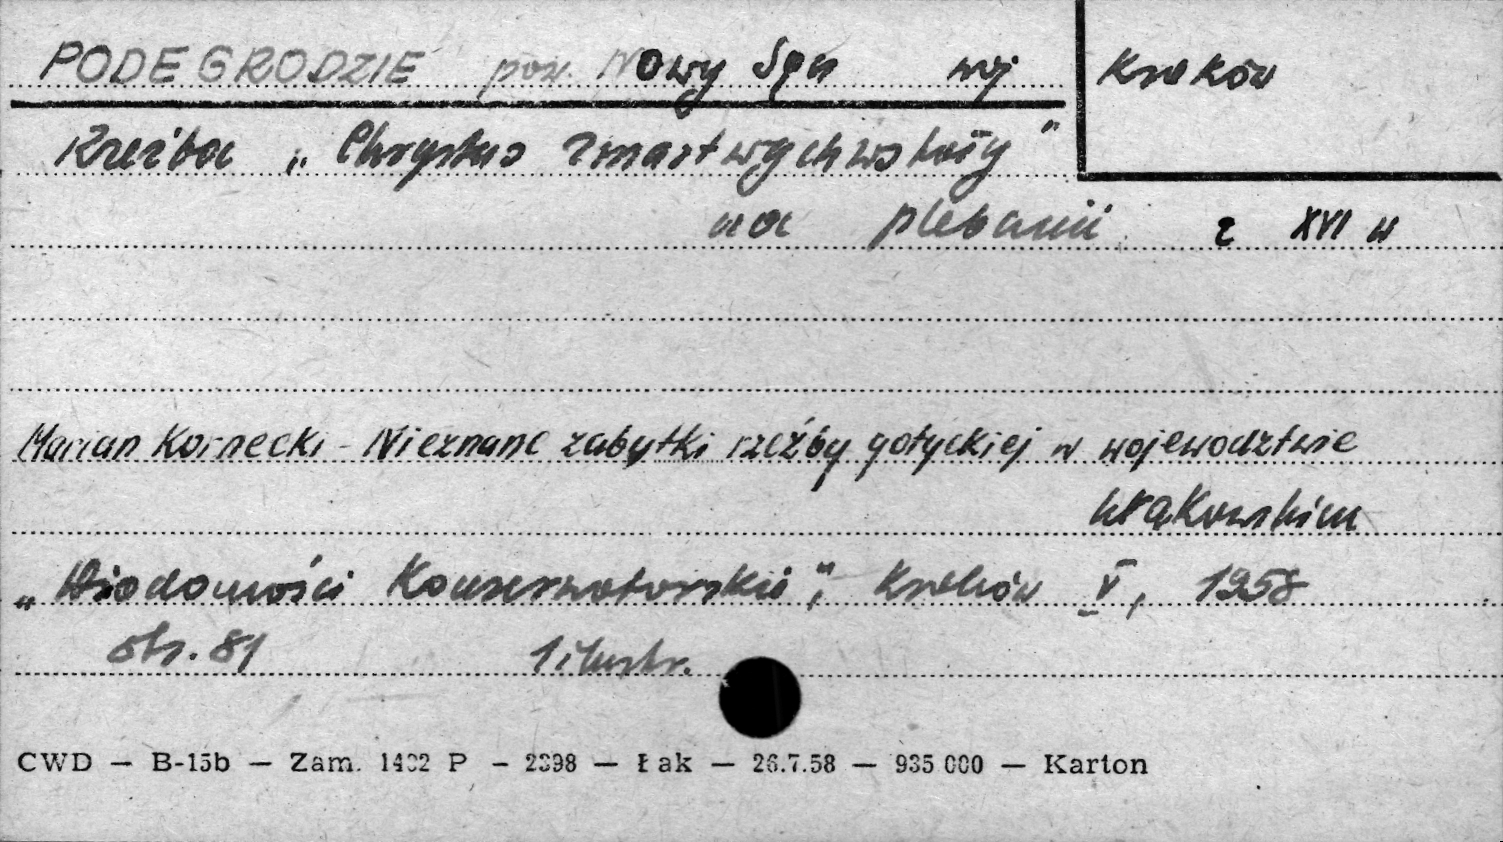 PODEGRODZIE pow. Nowy Sącz woj Kraków
Rzeźba „Chrystus Zmartwychwstały"
na plebanii z XVI w
Marian Kornecki - Nieznane zabytki rzeźby gotyckiej w województwie
krakowskim
„Wiadomości Konserwatorskie", Kraków V, 1958
str. 81 1 ilustr.
CWD — B-15b — Zam. 1432 P — 2398 — Łak — 26.7.58 — 935 000 — Karton